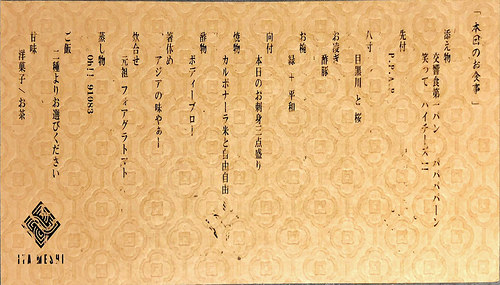 「本日のお食事」
添え物
交響食第一パン パパパパーン
笑って ハイチーズ!!
先付
P.P.P.P
八寸
目黒川 と 桜
お凌ぎ
酢豚
お椀
緑 + 平和
向付
本日のお刺身三点盛り
焼物
カルボナーラ米と自由自由
酢物
ボディーブロー
箸休め
アジアの味やぁー
炊合せ
元祖 フォアグラトマト
蒸し物
Oh!! 91083
ご飯
二種よりお選びください
甘味
洋菓子/お茶
ITA MESHI